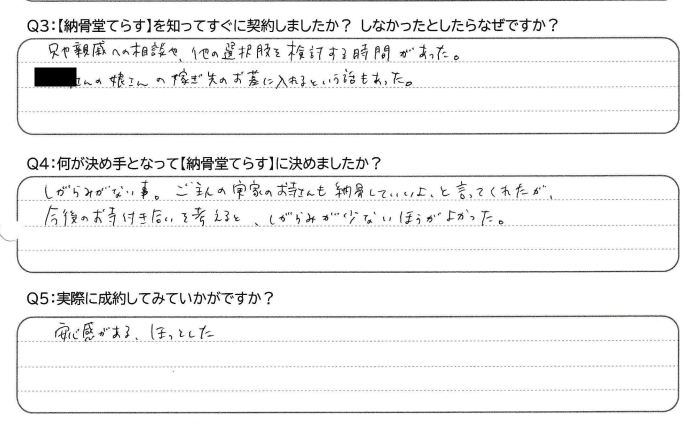 Q3:【納骨堂てらす】を知ってすぐに契約しましたか? しなかったとしたらなぜですか?
兄や親戚への相談や、他の選択肢を検討する時間があった。
さんの娘さんの嫁ぎ先のお墓に入れるという話もあった。
Q4:何が決め手となって【納骨堂てらす】に決めましたか?
しがらみがない事。ご主人の実家のお寺さんも納骨していいよ、と言ってくれたが、
今後のお寺付き合いを考えると、しがらみが少ないほうがよかった。
Q5:実際に成約してみていかがですか?
安心感がある、ほっとした